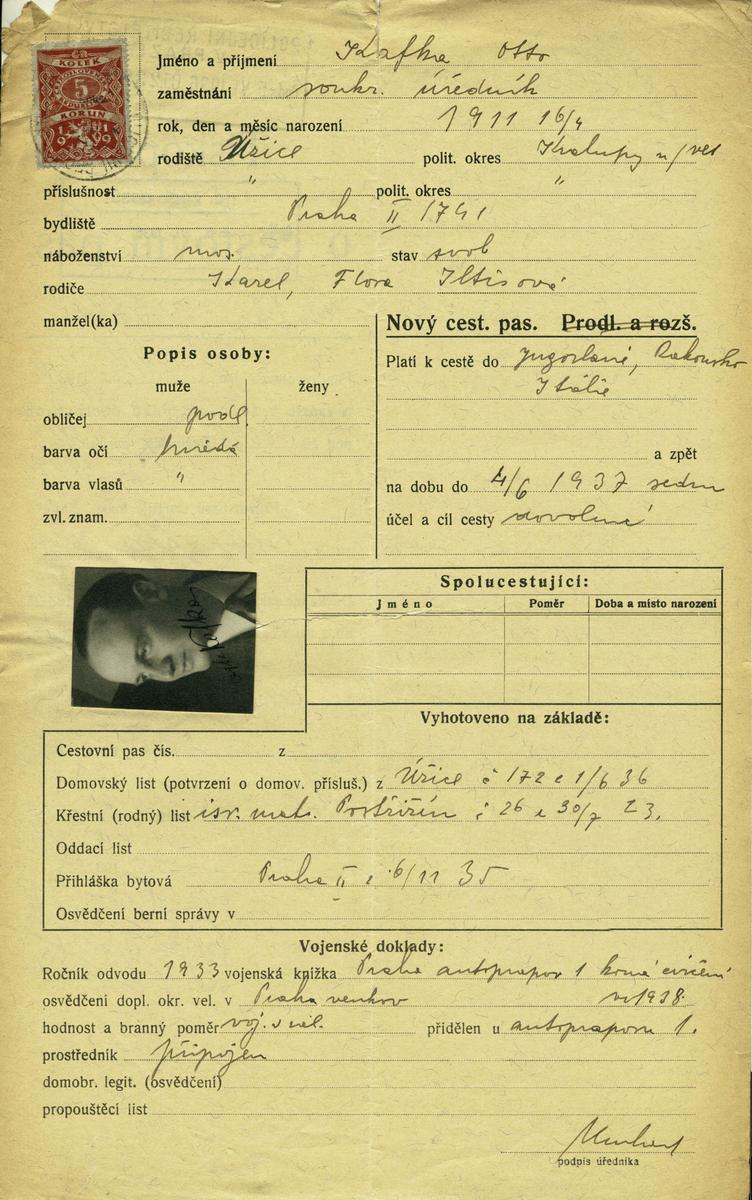 KOLEK
5
KORUN
1919
Jméno a příjmení Kafka Otto
zaměstnání soukr. úředník
rok, den a měsíc narození 1911 16/4
rodiště Úžice polit. okres Kralupy n/Vlt
příslušnost " polit. okres "
bydliště Praha II 1741
náboženství mos. stav svob
rodiče Karel, Flora Iltisová
manžel(ka)
Nový cest. pas. Prodl. a rozš.
Popis osoby:
muže ženy
obličej podl
barva očí hnědá
barva vlasů "
zvl. znam.
Platí k cestě do Jugoslavie, Rakousko
Itálie
a zpět
na dobu do 4/6 1937 sedm
účel a cíl cesty dovolená
Spolucestující:
Jméno Poměr Doba a místo narození
Vyhotoveno na základě:
Cestovní pas čís. z
Domovský list (potvrzení o domov. přísluš.) z Úžice č 172 z 1/6 36
Křestní (rodný) list isr. mat. Postřižín č 26 z 30/7 23.
Oddací list
Přihláška bytová Praha II z 6/11 35
Osvědčení berní správy v
Vojenské doklady:
Ročník odvodu 1933 vojenská knížka Praha autoprapor 1 koná cvičení
osvědčení dopl. okr. vel. v Praha venkov 1938.
hodnost a branný poměr voj. v zál. přidělen u autopraporu 1.
prostředník připojen
domobr. legit. (osvědčení)
propouštěcí list
podpis úředníka